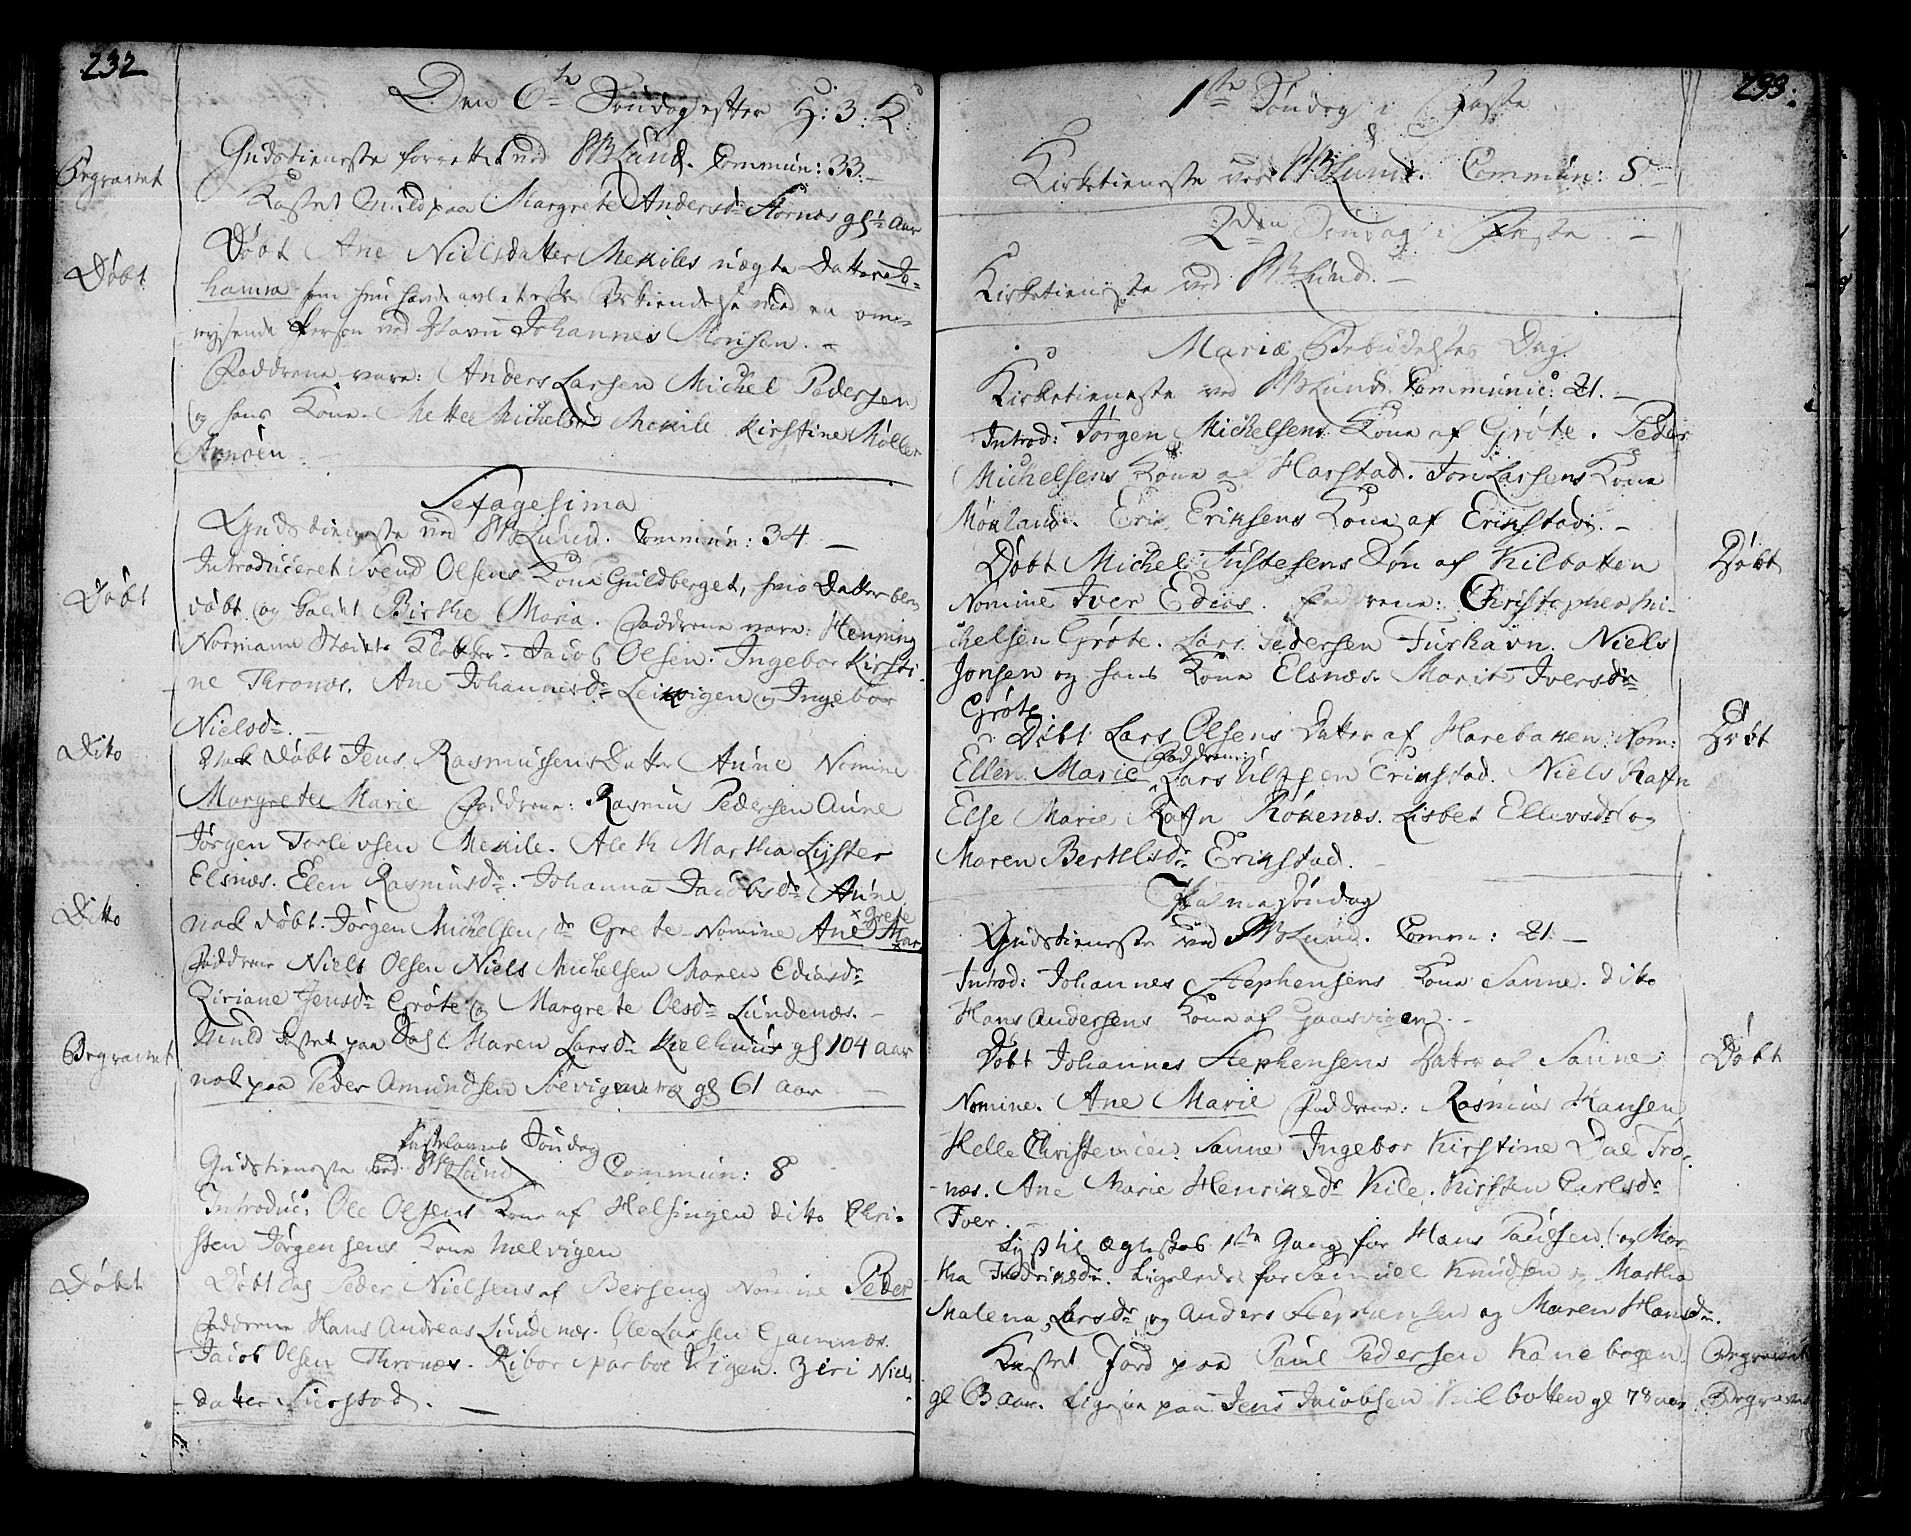 232
Den 6te Søndag efter H: 3: K:
Gudstieneste forrettet ved Lund. Commun: 33. –
Begravet
Kastet Muld paa Margrete Andersdr Stornæs gl ½ Aar
Døbt
Døbt Ane Nielsdatter Mekiles uægte Datter Jo-
hanna som hun havde avlet efter Bekiendelse med en om-
reysende Person ved Navn Johannes Monsen. –
Faddrene vare: Anders Larsen Michel Pedersen
og hans Kone. Mette Michelsdr Mekile Kirstine Møller
Arnøen.
Sexagesima
Gudstieneste ved Lund. Commun: 34 –
Introduceret Svend Olsens Kone Guldberget, hvis Datter blev
Døbt
døbt og kaldt Birthe Maria. Faddrene vare: Henning
Normann Klokker. Jacob Olsen. Ingebor Kirsti-
ne Thronæs. Ane Johannesdr Leikvigen og Ingebor
Nielsdr. –
Dito
Nok døbt Jens Rasmussens Datter Aune Nomine
Margrete Marie Faddrene: Rasmus Pedersen Aune
Jørgen Torlevsen Mekile. Aleth Martha Lyster
Elsnæs. Elen Rasmusdr. Johanna Jacobsdr Aune
Ditto
nok døbt. Jørgen Michelsens dr Grøte Nomine Ane Mar
× grete
Faddrene Niels Olsen Niels Michelsen Maren Ediasdr
Ziriane Jensdr Grøte og Margrete Olsdr Lundenæs. –
Begravet
Muld kastet paa Maren Larsdr Kielhuus gl 104 aar
nok paa Peder Amundsen Søevigmarka gl 61 aar –
Fastelavns Søndag
Gudstieneste ved Lund Commun: 8
Introduc: Ole Olsens Kone af Helsingen ditto Chri-
sten Jørgensens Kone Melvigen
Døbt
Døbt Peder Nielsens af Berseng Nomine Peder
Faddrene Hans Andreas Lundenæs. Ole Larsen Gamnæs.
Jacob Olsen Thronæs. Ribor Sparboe Vigen. Ziri Niels
datter Sierstad. –
233:
1ste Søndag i Faste
Kirketieneste ved Lund. Commun: 8 –
2den Søndag i Faste –
Kirketieneste ved Lund. –
Mariæ Bebudelses Dag.
Kirketieneste ved Lund Communic: 21. –
Introd: Jørgen Michelsens Kone af Grøte. Peder
Michelsens Kone af Harstad. Jon Larsens Kone
Møkland. Eric Eriksens Kone af Erikstad. –
Døbt
Døbt Michel Justesens Søn af Kilbotten
Nomine Iver Edias. Faddrene: Christopher Mi-
chelsen Grøte. Lars Pedersen Furhavn. Niels
Jonsen og hans Kone Elsnæs. Marit Iversdr
Grøte.
Døbt
Døbt Lars Olsens Datter af Harebaken Nom:
Ellen Marie Faddrene: Lars Olsen Erikstad. Niels Rafn
Else Marie Rafn Røkenæs. Lisbet Ellevsdr og
Maren Bertelsdr Erikstad. –
Palmesøndag
Gudstieneste ved Lund. Comm: 21 –
Introd: Johannes Stephensens Kone Sanne. dito
Hans Andersens Kone af Gaasvigen. –
Døbt
Døbt Johannes Stephensens Datter af Sanne
Nomine. Ane Marie Faddrene: Rasmus Hansen
Helle Sanne Ingebor Kirstine Dal Tro-
næs. Ane Marie Henriksdr Kile. Kirsten Carlsdr
Foer. –
Lyst til Ægteskab 1ste Gang for Hans Paulsen og Mar-
tha Fredriksdr. Ligeledes for Samuel Knudsen og Martha
Malena Larsdr og Anders Stephensen og Maren Hansdr.
Begravet
Kastet Jord paa Paul Pedersen Kanebogen
Begravet
gl 63 aar. Ligesaa paa Jens Jacobsen Kilbotten gl 78 aar